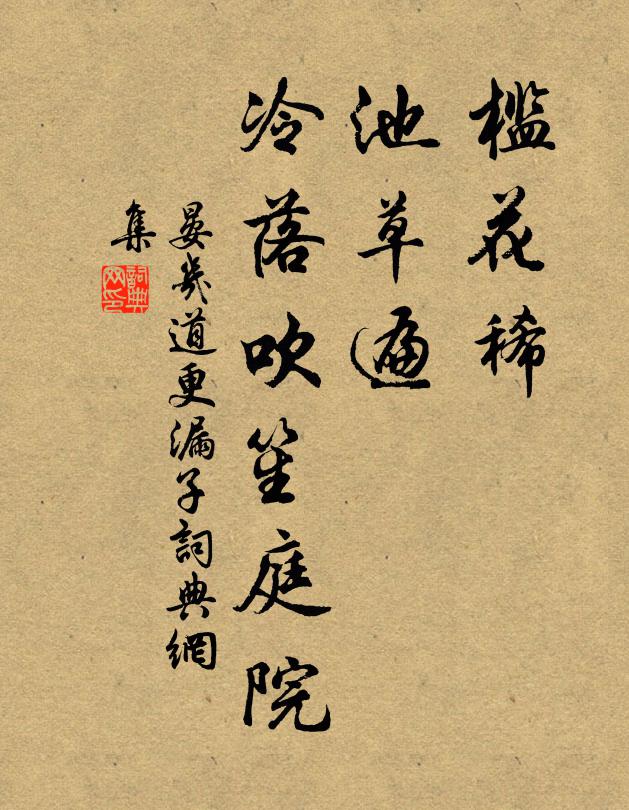 檻花稀
池草遍
冷落吹笙庭院
晏幾道更漏子詞典網
集
詞典
网印